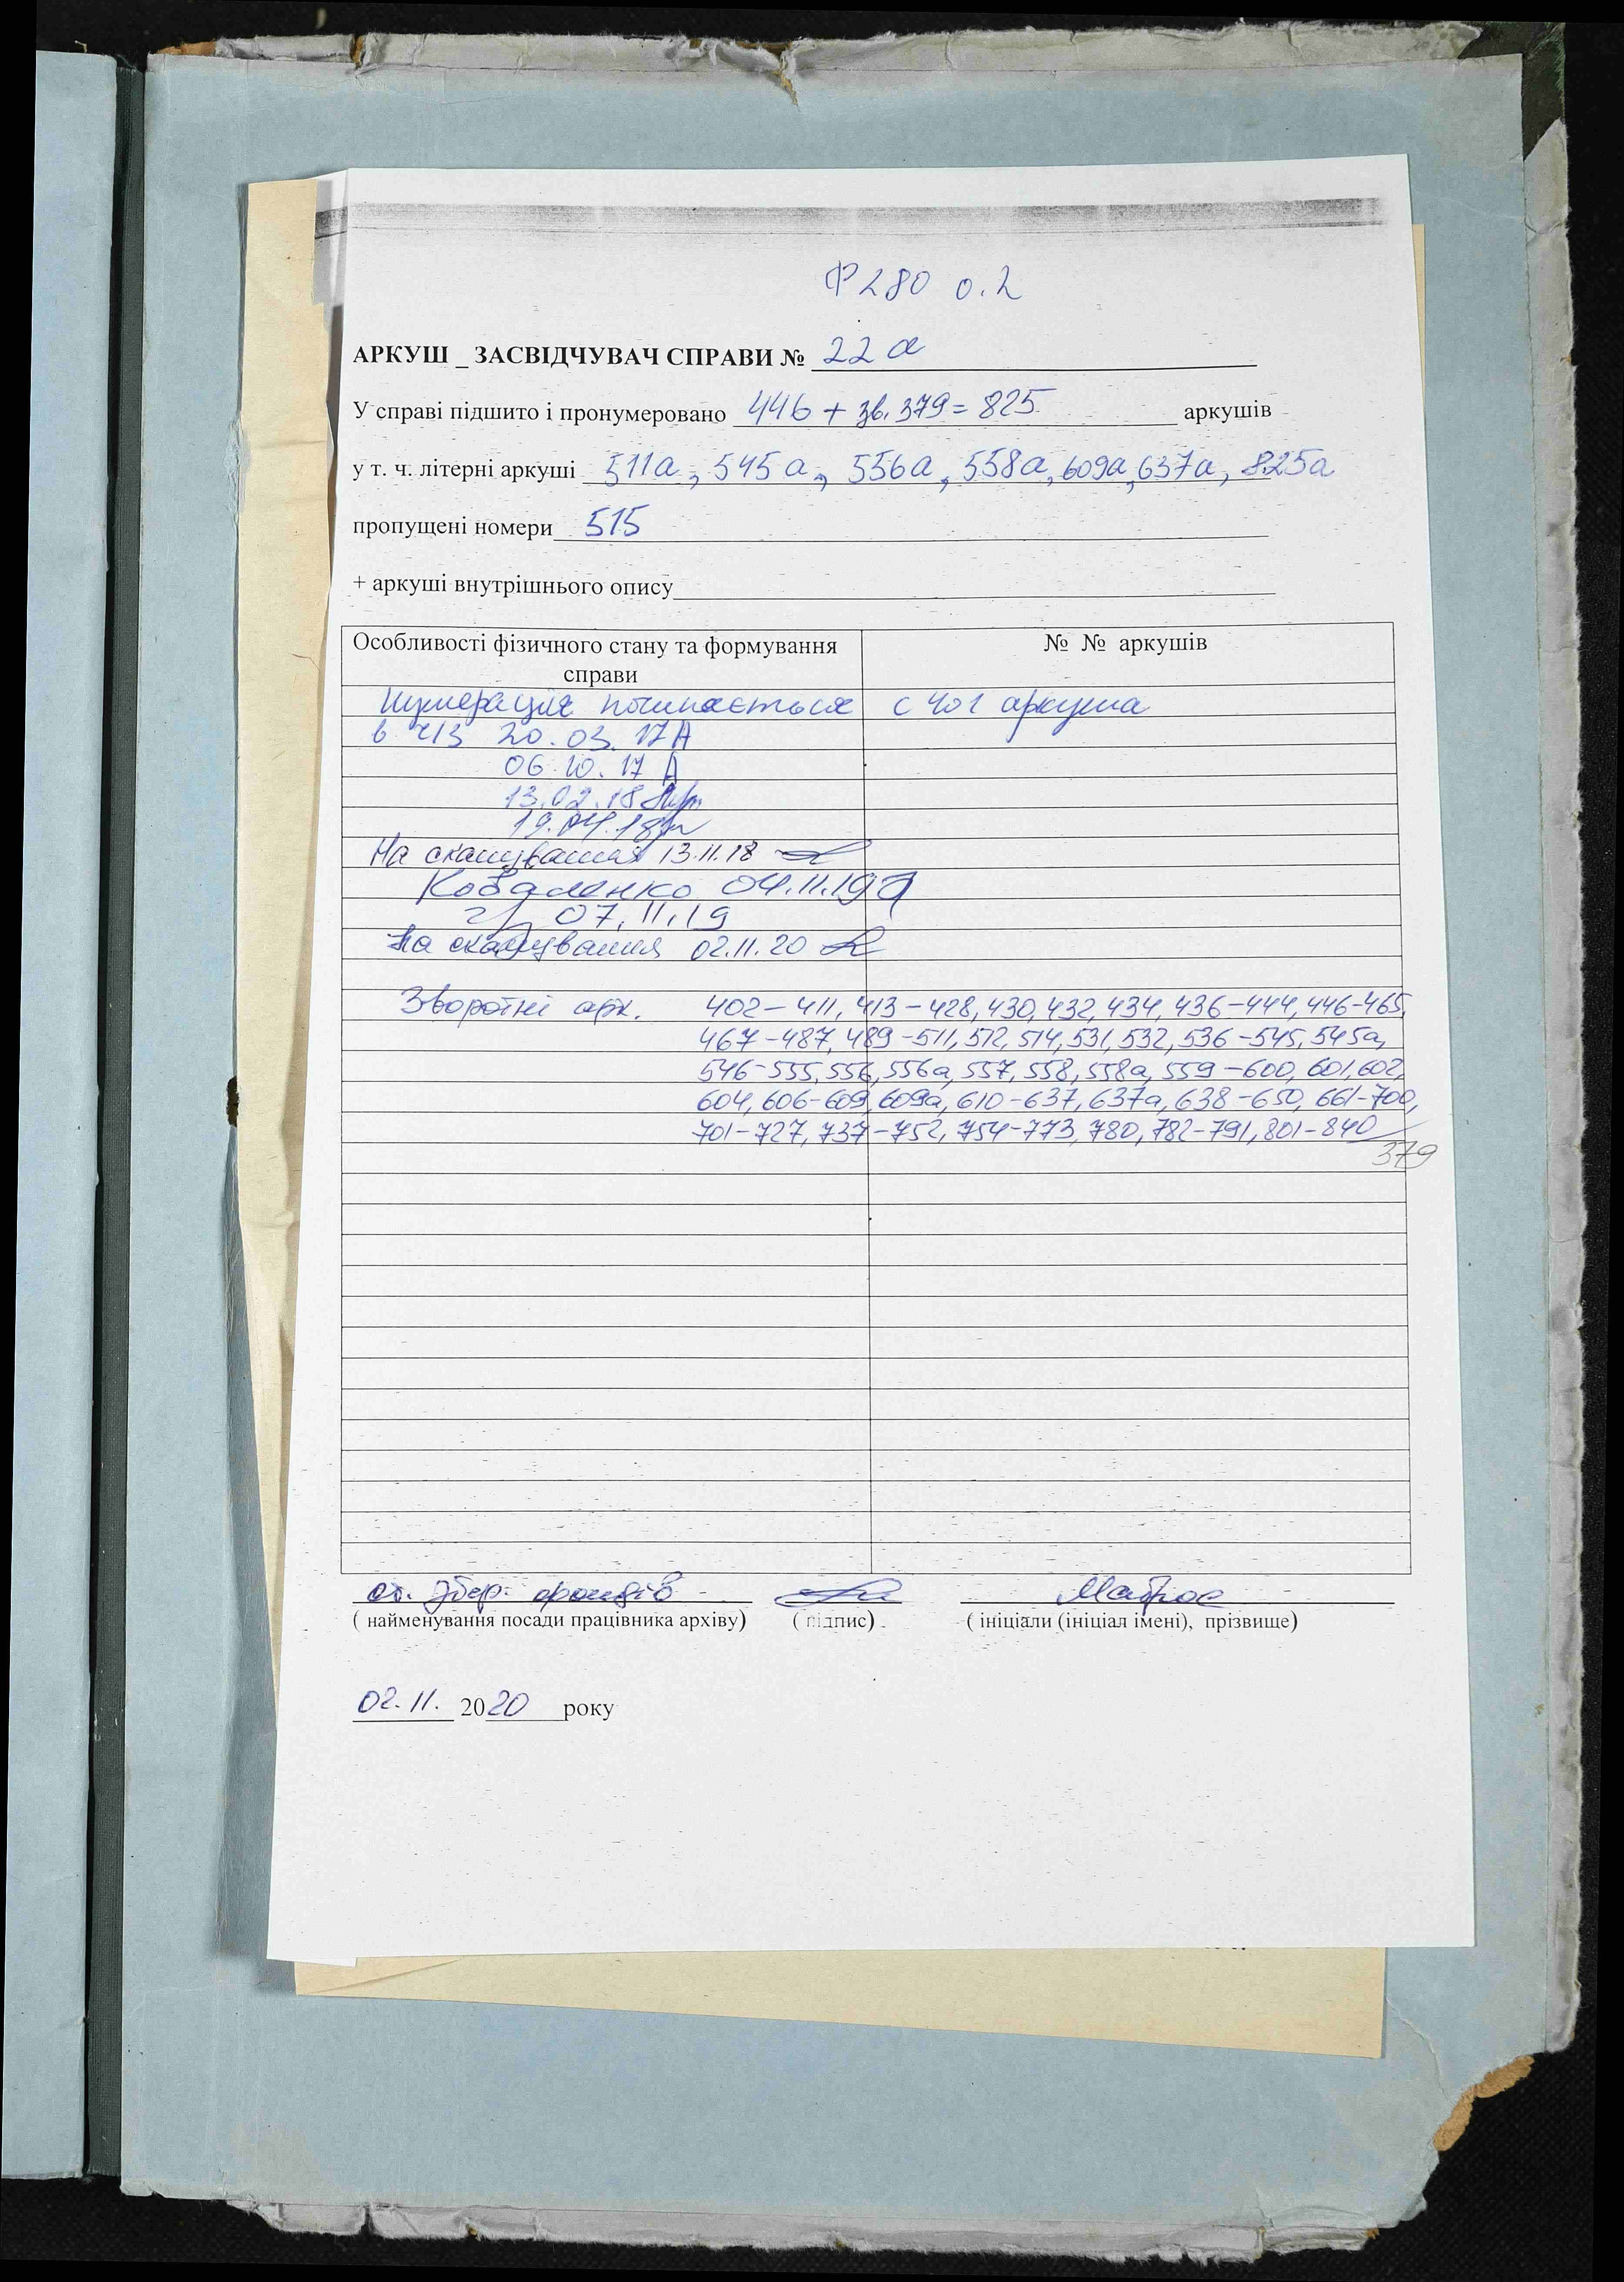 Ф 280 о. 2
АРКУШ _ ЗАСВІДЧУВАЧ СПРАВИ № 22 а
У справі підшито і пронумеровано 446 + зв. 379 = 825 аркушів
у т. ч. літерні аркуші 511а, 545а, 556а, 558а, 609а, 637а, 825а
пропущені номери 515
+ аркуші внутрішнього опису
Особливості фізичного стану та формування справи
№ № аркушів
Нумерація починається с 401 аркуша
в ч/з 20.03.17
06.10.17
13.02.18
19.04.18
На сканування 13.11.18
Коваленко 04.11.19
07.11.19
На сканування 02.11.20
Зворотні арк. 402–411, 413–428, 430, 432, 434, 436–444, 446-465,
467–487, 489–511, 512, 514, 531, 532, 536–545, 545а,
546-555, 556, 556а, 557, 558, 558а, 559–600, 601, 602,
604, 606-609, 609а, 610–637, 637а, 638–650, 661-700,
701–727, 737–752, 754-773, 780, 782-791, 801–840
379
ст. збер. фондів Матрос
( найменування посади працівника архіву) ( підпис) ( ініціали (ініціал імені), прізвище)
02.11. 2020 року